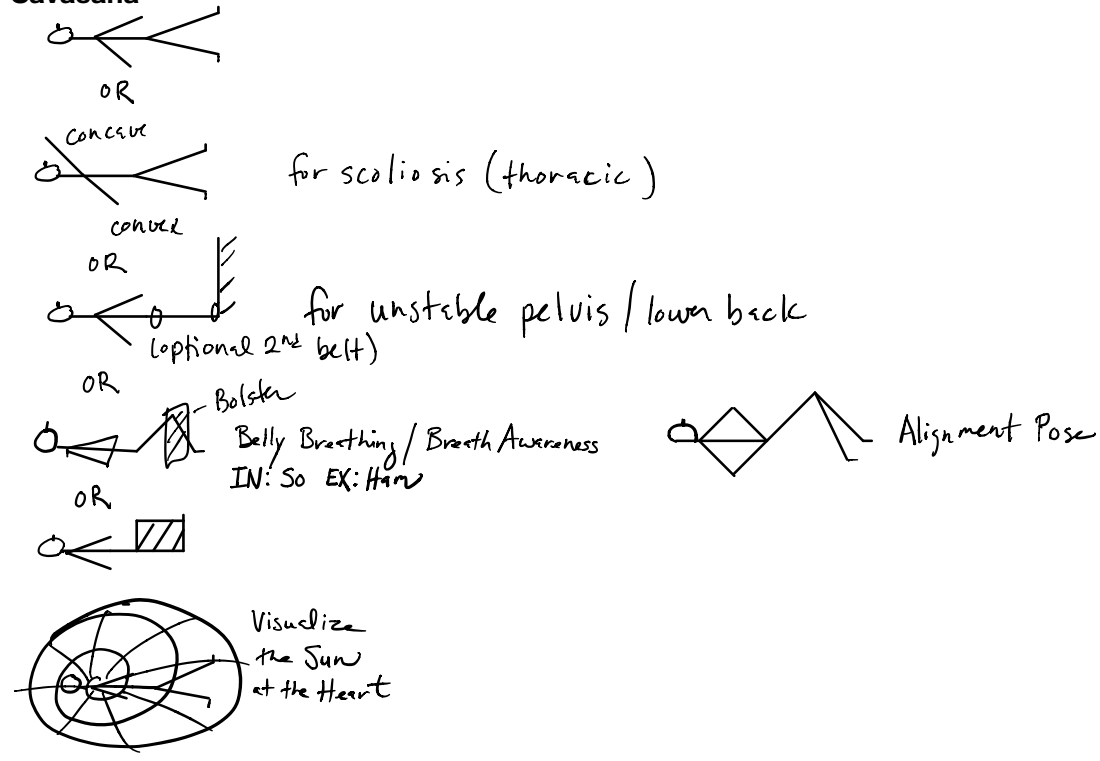 Savasana
OR
concave
for scoliosis (thoracic)
convex
OR
for unstable pelvis / lower back
(optional 2nd belt)
OR
Bolster
Belly Breathing / Breath Awareness
IN: So EX: Ham
Alignment Pose
OR
Visualize
the Sun
at the Heart